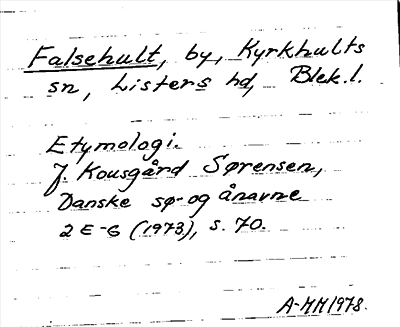 Falsehult, by, Kyrkhults
sn, Listers hd, Blek.l.
Etymologi.
J. Kousgård Sørensen,
Danske sø- og ånavne
2 E-G (1973), s. 70.
A-MH 1978.